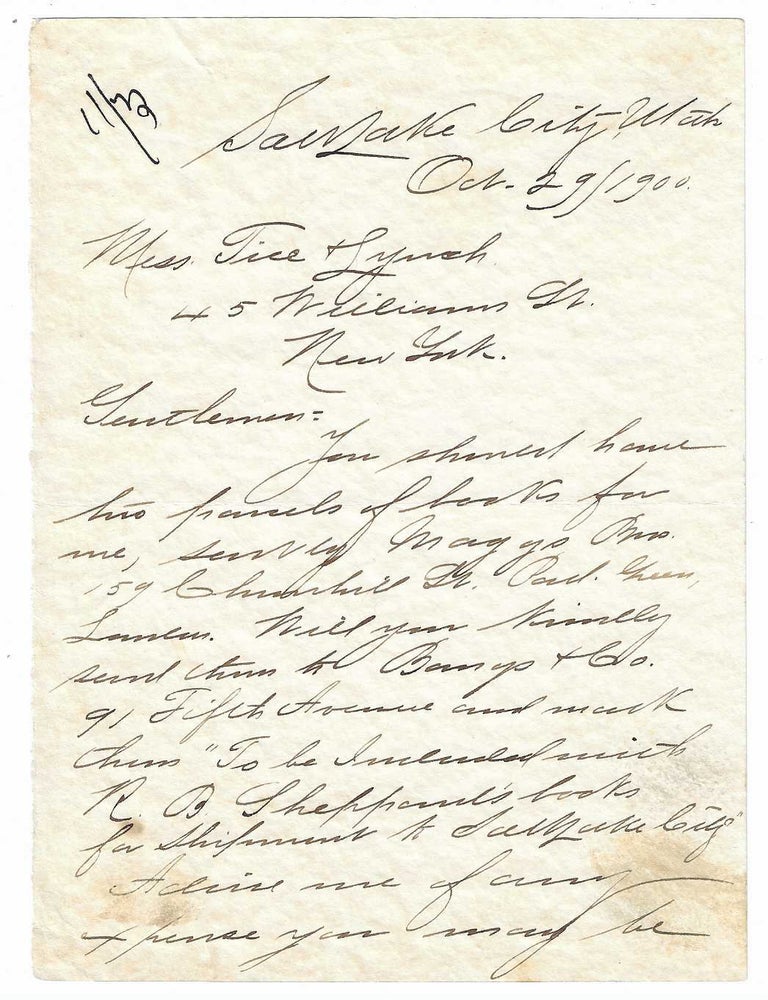 11/22
Salt Lake City, Utah
Oct. 29/1900.
Mess. Tice & Lynch
45 Williams St.
New York.
Gentlemen=
You should have
two parcels of books for
me, sent by Maggs Bros.
159 Church St. Pad. Green,
London. Will you kindly
send them to Bangs & Co.
91 Fifth Avenue and mark
them "To be Included with
R. B Sheppard's books
for Shipment to Salt Lake City"
Advise me of any
expense you may be